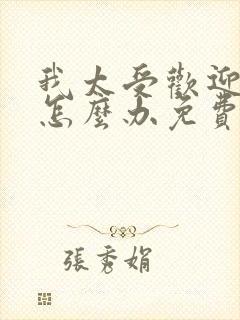 我太受歡迎
怎麼办免費
張秀娟